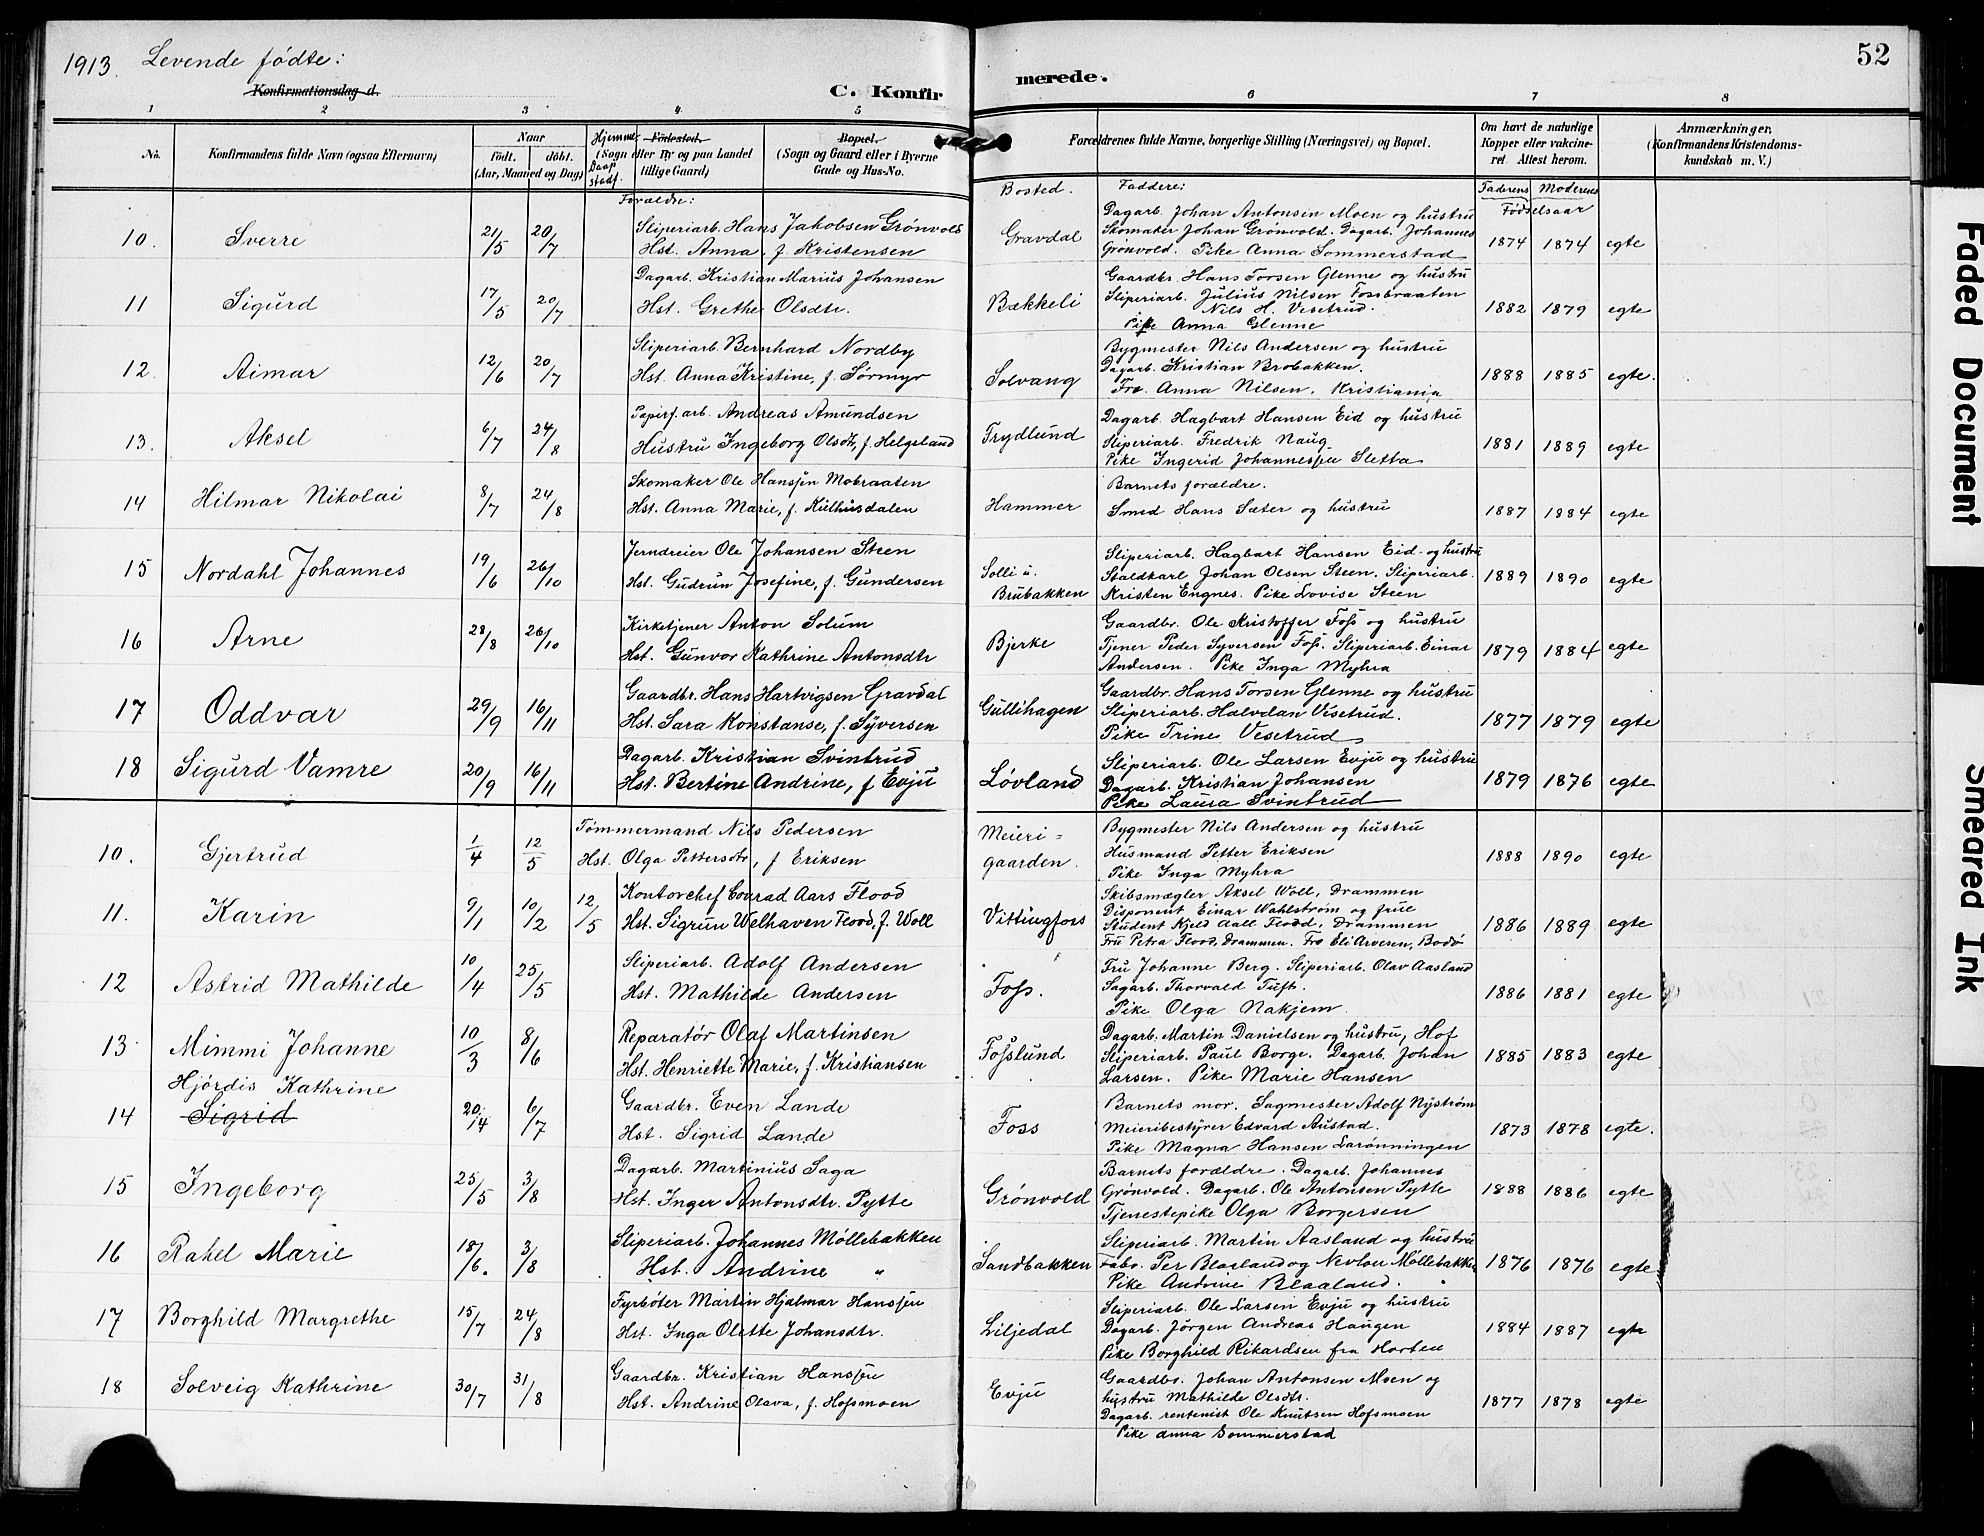 1913. Levende fødte:
52
Konfirmationsdag d.
C. Konfir merede.
1 2 3 4 5 6 7 8
No. Konfirmandens fulde Navn (ogsaa Efternavn) Naar født. døbt. (Aar, Maaned og Dag) Hjemme Daap stadf. Fødested. (Sogn eller By og paa Landet tillige Gaard) Bopæl. (Sogn og Gaard eller i Byerne Gade og Hus-No. Forældrenes fulde Navne, borgerlige Stilling (Næringsvei) og Bopæl. Om havt de naturlige Kopper eller vakcineret. Attest herom. Anmærkninger. (Konfirmandens Kristendomskundskab m. V.)
Forældre: Bosted. Faddere: Faderens Moderens Fødselsaar
10. Sverre 21/5 20/7 Sliperiarb. Hans Jakobsen Grønvold
Hst. Anna, f. Kristensen
Gravdal
Dagarb. Johan Antonsen Moen og hustru
Skomaker Johan Grønvold. Dagarb. Johannes
Grønvold. Pike Anna Sommerstad
1874 1874 egte
11 Sigurd 17/5 20/7 Dagarb. Kristian Marius Johansen
Hst. Grethe Olsdtr.
Bækkeli
Gaardbr. Hans Torsen Glenne og hustru
Sliperiarb. Julius Nilsen Fossbraaten
Nils H. Vesetrud.
Pike Anna Glenne
1882 1879 egte
12. Aimar 12/6 20/7 Sliperiarb. Bernhard Nordby
Hst. Anna Kristine, f. Sørmyr
Solvang
Bygmester Nils Andersen og hustru
Dagarb. Kristian Brobakken.
Frø. Anna Nilsen. Kristiania
1888 1885 egte.
13. Aksel 6/7 24/8 Papirf.arb. Andreas Amundsen
Hustru Ingeborg Olsdtr, f. Helgeland
Frydlund
Dagarb. Hagbart Hansen Eid og hustru
Sliperiarb. Fredrik Naug
Pike Ingerid Johannessen Sletta
1881 1889 egte
14 Hilmar Nikolai 8/7 24/8 Skomaker Ole Hanssen Mobraaten
Hst. Anna Marie, f. Kulhusdalen
Hammer
Barnets forældre.
Smed Hans Sæter og hustru
1887 1884 egte
15 Nordahl Johannes 19/6 26/10 Jerndreier Ole Johansen Steen
Hst. Gudrun Josefine, f. Gundersen
Solli u.
Brubakken
Sliperiarb. Hagbart Hansen Eid og hustru
Staldkarl Johan Olsen Steen. Sliperiarb.
Kristen Engnes. Pike Lovise Steen
1889 1890 egte
16 Arne 28/8 26/10 Kirketjener Anton Solum
Hst. Gunvor Kathrine Antonsdtr
Bjerke
Gaardbr. Ole Kristoffer Foss og hustru
Tjener Peder Syversen Foss. Sliperiarb. Einar
Andersen. Pike Inga Myhra
1879 1884 egte
17 Oddvar 29/9 16/11 Gaardbr. Hans Hartvigsen Gravdal
Hst. Sara Konstanse, f. Syversen
Gullihagen
Gaardbr. Hans Torsen Glenne og hustru
Sliperiarb. Halvdan Vesetrud.
Pike Trine Vesetrud
1877 1879 egte
18 Sigurd Vamre 20/9 16/11 Dagarb. Kristian Svintrud
Hst. Bertine Andrine, f Evju
Løvland
Sliperiarb. Ole Larsen Evju og hustru
Dagarb. Kristian Johansen
Pike Laura Svintrud
1879 1876 egte
10. Gjertrud 1/4 12/5 Tømmermand Nils Pedersen
Hst. Olga Pettersdtr, f Eriksen
Meieri=
gaarden.
Bygmester Nils Andersen og hustru
Husmand Petter Eriksen
Pike Inga Myhra
1888 1890 egte
11. Karin 9/1 10/2 12/5 Kontorchef Conrad Aars Flood
Hst. Sigrun Welhaven Flood, f. Woll
Vittingfoss
Skibsmægler Aksel Woll, Drammen
Disponent Einar Wahlstrøm og frue
Student Kjeld Aall Flood, Drammen
Fru Petra Flood, Drammen. Frø Eli Arvesen, Bodø
1886 1889 egte
12 Astrid Mathilde 10/4 25/5 Sliperiarb. Adolf Andersen
Hst. Mathilde Andersen
Foss.
Fru Johanne Berg. Sliperiarb. Olav Aasland
Sagarb. Thorvald Tuft.
Pike Olga Nakjem
1886 1881 egte
13 Mimmi Johanne 10/3 8/6 Reparatør Olaf Martinsen
Hst. Henriette Marie, f. Kristiansen
Fosslund
Dagarb. Martin Danielsen og hustru, Hof
Sliperiarb. Paul Borge. Dagarb. Johan
Larsen. Pike Marie Hansen
1885 1883 egte
Hjørdis Kathrine
14 Sigrid 20/4 6/7 Gaardbr. Even Lande
Hst. Sigrid Lande
Foss
Barnets mor. Sagmester Adolf Nystrøm
Meieribestyrer Edvard Austad.
Pike Magna Hansen Larønningen
1873 1878 egte.
15 Ingeborg 25/5 3/8 Dagarb. Martinius Saga
Hst. Inger Antonsdtr. Pytte
Grønvold
Barnets forældre. Dagarb. Johannes
Grønvold. Dagarb. Ole Antonsen Pytte
Tjenestepike Olga Borgersen
1888 1886 egte
16 Rahel Marie 18/6. 3/8 Sliperiarb. Johannes Møllebakken
Hst. Andrine "
Sandbakken
Sliperiarb. Martin Aasland og hustru
Fabo. Per Blaaland og Nevlou Møllebakken
Pike Andrine Blaaland.
1876 1876 egte
17 Borghild Margrethe 15/7 24/8 Fyrbøter Martin Hjalmar Hanssen
Hst. Inga Olette Johansdtr.
Liljedal
Sliperiarb. Ole Larsen Evju og hustru
Dagarb. Jørgen Andreas Haugen
Pike Borghild Rikardsen fra Horten
1884 1887 egte
18 Solveig Kathrine 30/7 31/8 Gaardbr. Kristian Hanssen
Hst. Andrine Olava, f. Hofsmoen
Evju
Gaardbr. Johan Antonsen Moen og
hustru Mathilde Olsdtr.
Dagarb. rentenist Ole Knutsen Hofsmoen
Pike Anna Sommerstad
1877 1878 egte
Faded Document
Smeared Ink